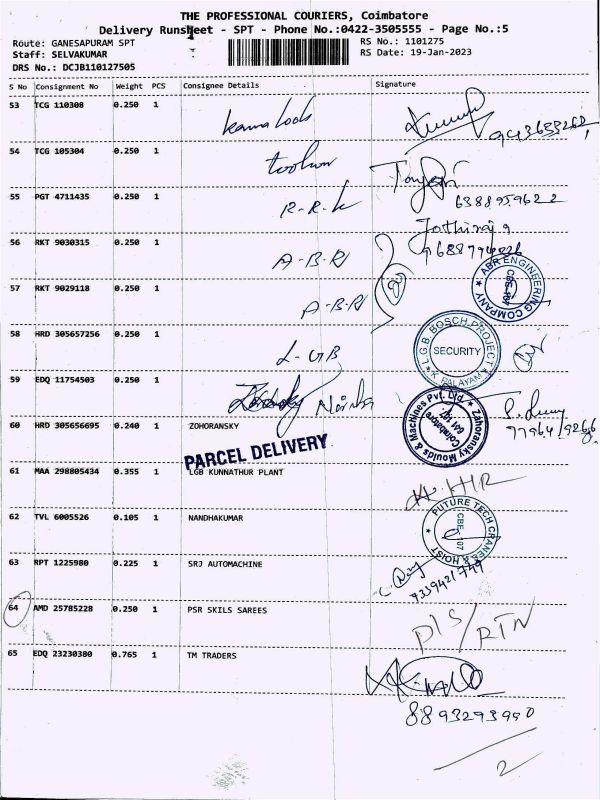 THE PROFESSIONAL COURIERS, Coimbatore
Delivery Runsheet - SPT - Phone No.:0422-3505555 - Page No.:5
Route: GANESAPURAM SPT
RS No.: 1101275
Staff: SELVAKUMAR
RS Date: 19-Jan-2023
DRS No.: DCJB110127505
S No Consignment No Weight PCS Consignee Details Signature
53 TCG 110308 0.250 1
54 TCG 105304 0.250 1
6388959622
55 PGT 4711435 0.250 1 R-R-K
Jothiraj
56 RKT 9030315 0.250 1 A-B-R
ABR ENGINEERING COMPANY CBE-107
57 RKT 9029118 0.250 1 A-B-R
58 HRD 305657256 0.250 1 L-GB
L.G.B. BOSCH PROJECT SECURITY K. PALAYAM
59 EDQ 11754503 0.250 1
Zahoransky Moulds & Machines Pvt. Ltd. Coimbatore 641 107.
60 HRD 305656695 0.240 1 ZOHORANSKY
PARCEL DELIVERY
61 MAA 298805434 0.355 1 LGB KUNNATHUR PLANT
62 TVL 6005526 0.105 1 NANDHAKUMAR
FUTURE TECH CRANES & HOIST CBE-107
63 RPT 1225980 0.225 1 SRJ AUTOMACHINE
64 AMD 25785228 0.250 1 PSR SKILS SAREES
RTN
65 EDQ 23230380 0.765 1 TM TRADERS
8893293990
2